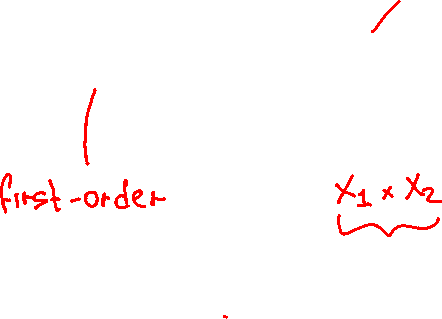 first-order
x₁ × x₂